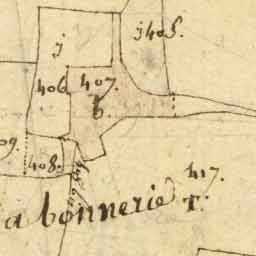 j
j 405.
406
407.
b.
09.
408.
417.
a bonnerie
T.